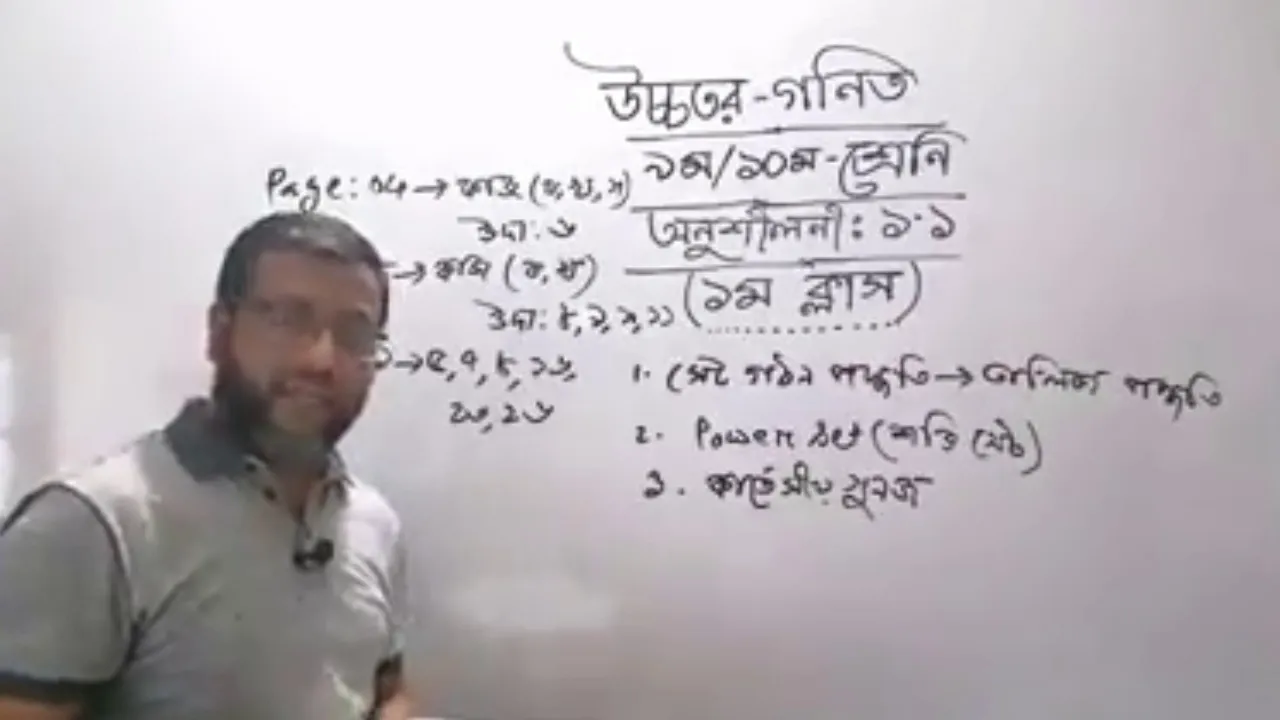 উচ্চতর-গনিত
৯ম/১০ম-শ্রেনি
অনুশীলনী: ১.১
(১ম ক্লাস)
Page: ০৮ → কাজ (ক, খ, গ)
উদা: ৬
→ কাজ (ক, খ)
উদা: ৮, ৯, ১০, ১১
→ ৫, ৭, ৮, ১৬,
২৬
1. সেট গঠন পদ্ধতি → তালিকা পদ্ধতি
2. Power set (শক্তি সেট)
3. কার্তেসীয় গুনজ